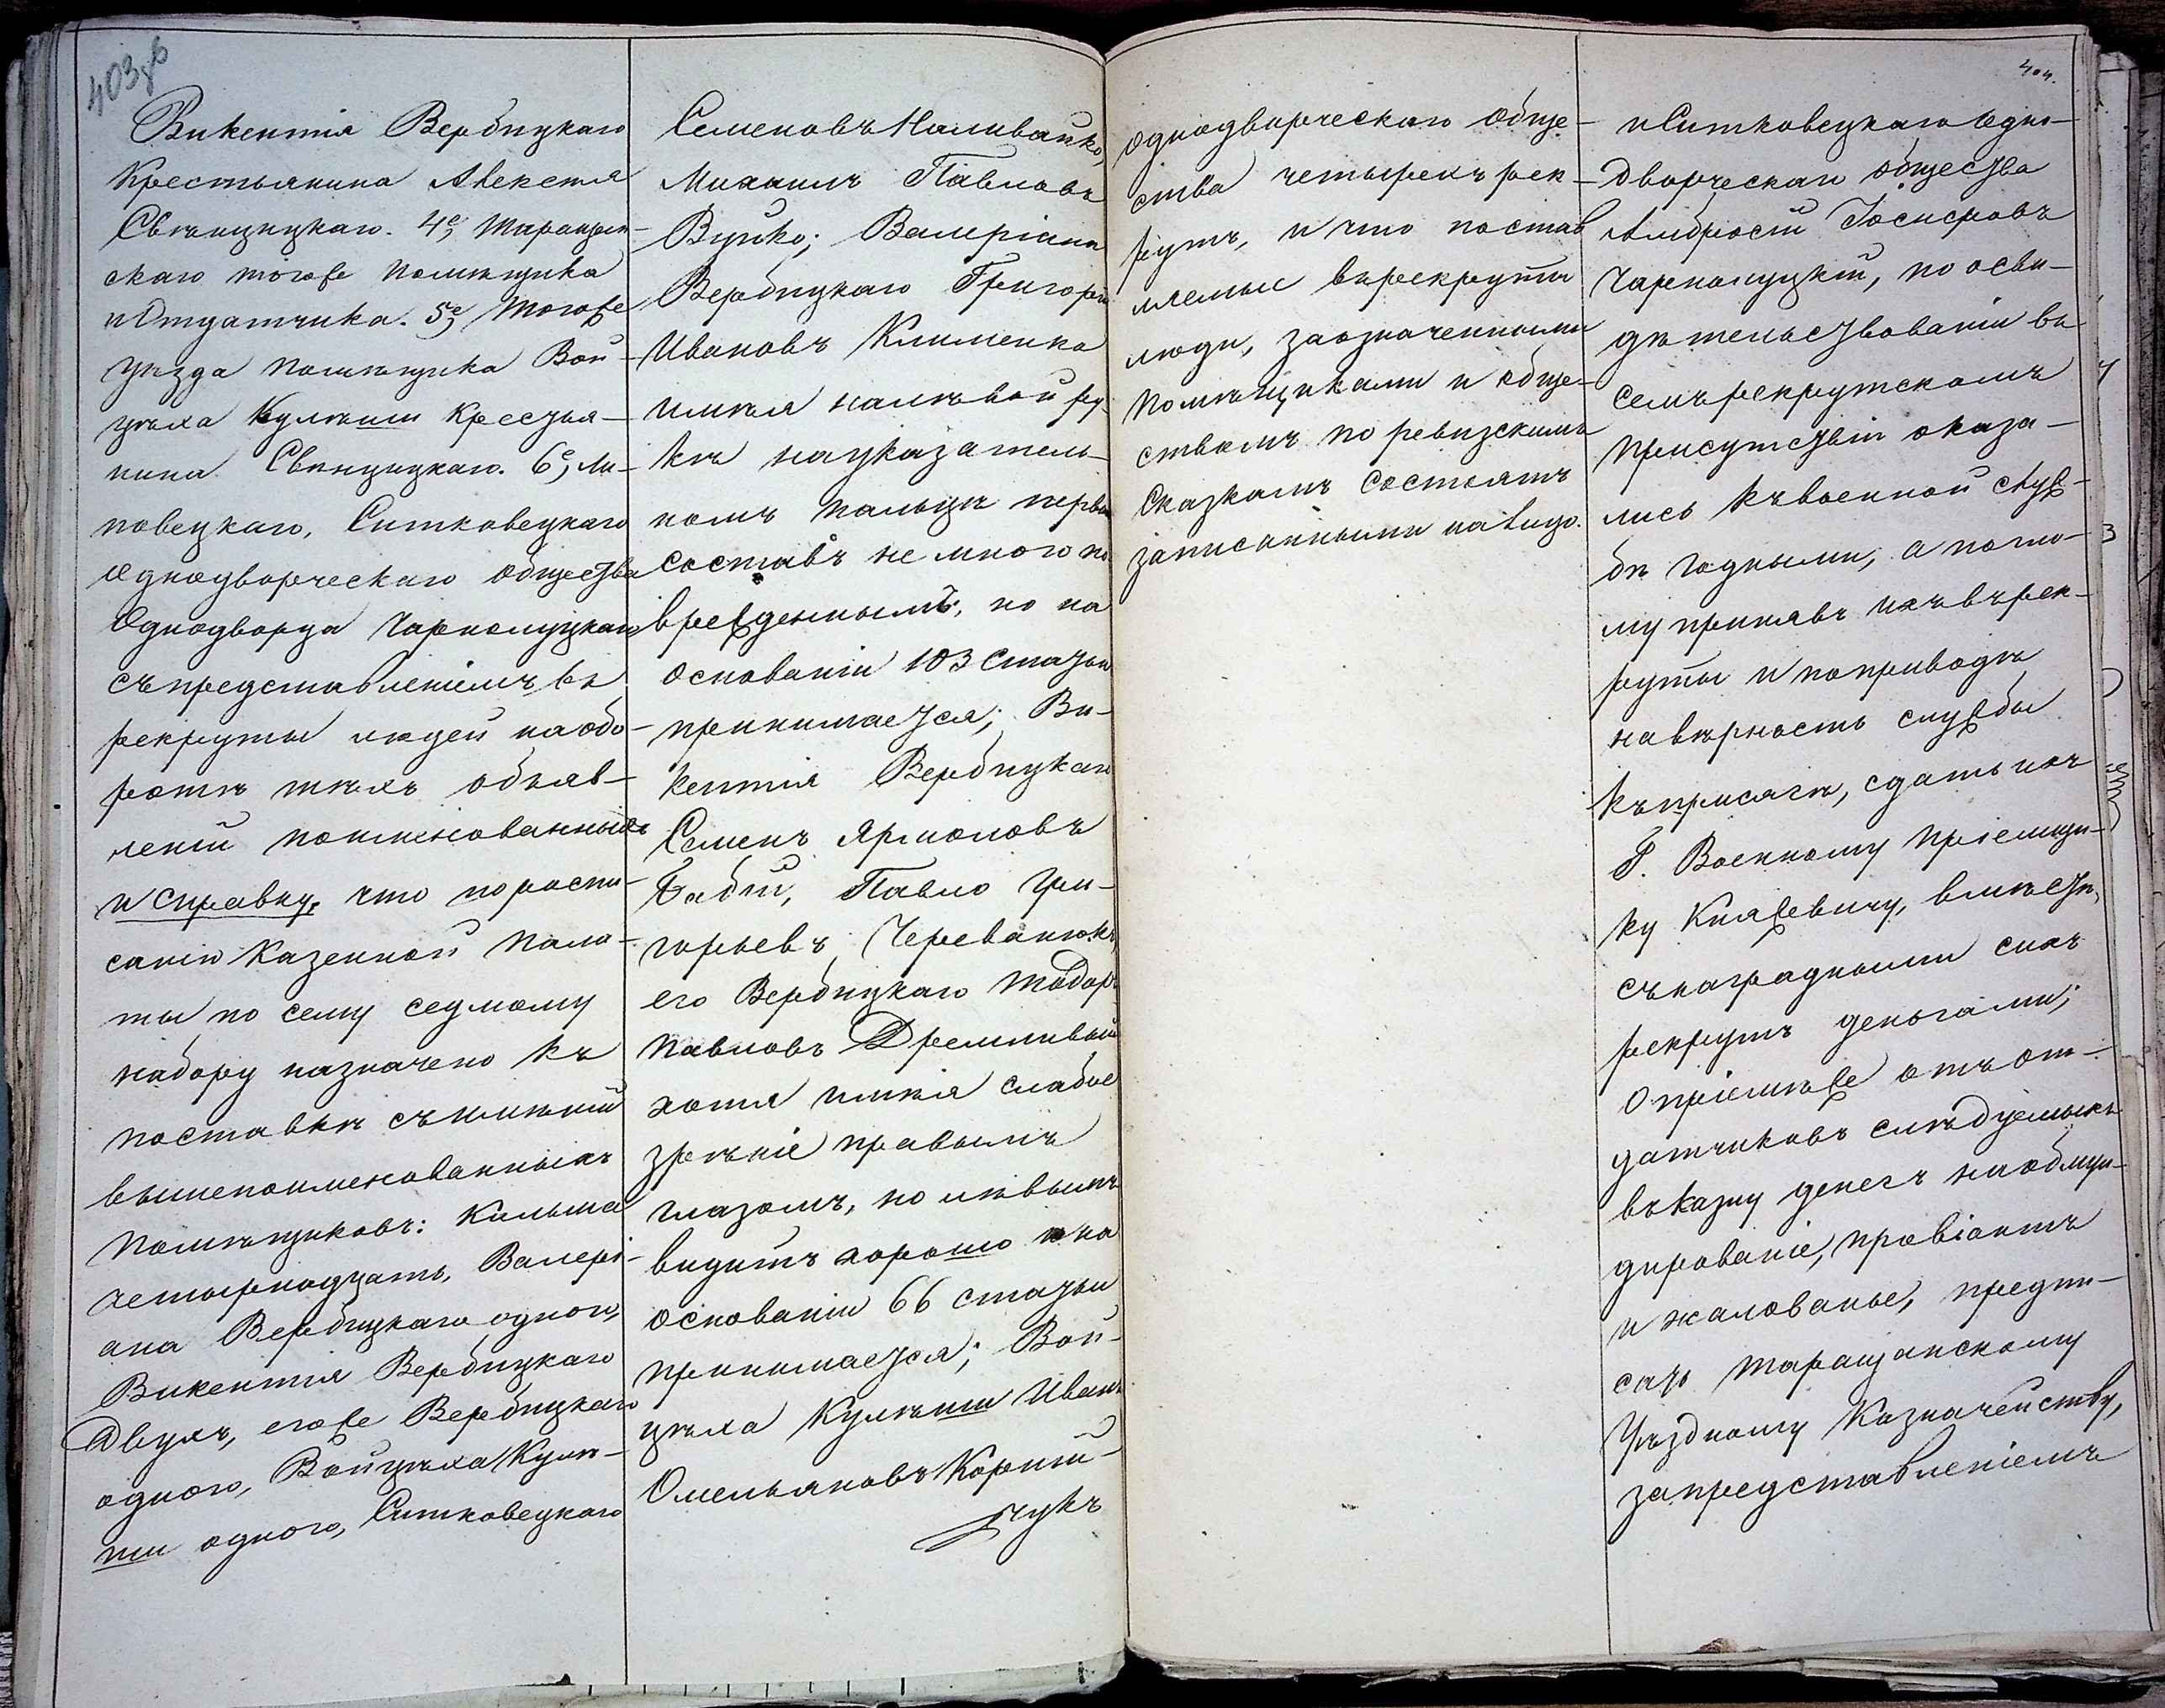 403об
Викентія Вербицкаго
Крестьянина Алексея
Свѣнцицкаго. 4е, Таращан-
скаго тогоже помѣщика
и Отдатчика. 5е, Тогоже
уѣзда помѣщика Вой-
цѣха Кулѣши Крестья-
нина Свенцицкаго. 6е, Ли-
повецкаго, Ситковецкаго
Однодворческаго общества
Однодворца Чарнолуцкаго
съ представленіемъ въ
рекруты людей на обо-
ротѣ тѣхъ объяв-
леній поименованныхъ
и справку, что по роспи-
санію Казенной Пала-
ты по сему седмому
набору назначено къ
поставкѣ съ имѣній
вышепоименованныхъ
помѣщиковъ:
четырнадцать, Валері-
ана Вербицкаго одного,
Викентія Вербицкаго
Двухъ, егоже Вербицкаго
одного, Войцѣха Кулѣ-
ши одного, Ситковецкаго
Семеновъ Наливайко,
Михаилъ Павловъ
Вуйко; Валеріана
Вербицкаго Григорій
Ивановъ Клименко
имѣя на лѣвой ру-
кѣ на указатель-
номъ пальцѣ первый
составъ не много по
врежденнымъ, но на
основаніи 103 статьи
принимается; Ви-
кентія Вербицкаго
Семенъ Ярмоловъ
Бабій, Павло Гри-
горьевъ Череванюкъ,
его Вербицкаго Тодоръ
Павловъ Дремливый
хотя имѣя слабое
зрѣніе правымъ
глазомъ, но лѣвымъ
видитъ хорошо и на
основаніи 66 статьи
принимается; Вой-
цѣха Кулѣши Иванъ
Омельяновъ Корній-
чукъ
однодворческаго обще-
ства четырехъ рек-
рутъ, и что постав
ляемые въ рекруты
люди, за означенными
помѣщиками и обще-
ствомъ по ревизскимъ
Сказкамъ состоятъ
записанными на лицо.
404.
и Ситковецкаго Одно-
Дворческаго общества
Амбросій Іосифовъ
Чарнолуцкій, по осви-
дѣтельствованіи въ
семъ рекрутскомъ
присутствіи оказа-
лись къ военной служ-
бѣ годными, а пото-
му принявъ ихъ въ рек-
руты и по приводѣ
на вѣрность службы
къ присягѣ, сдать ихъ
Г. Военному пріемщи-
ку Княжевичу, вмѣстѣ,
съ наградными сихъ
рекрутъ деньгами;
О пріемѣже отъ от-
датчиковъ слѣдуемыхъ
въ казну денегъ на обмун-
дированіе, провіантъ
и жалованье, предпи-
сать Таращанскому
Уѣздному Казначейству,
за представленіемъ